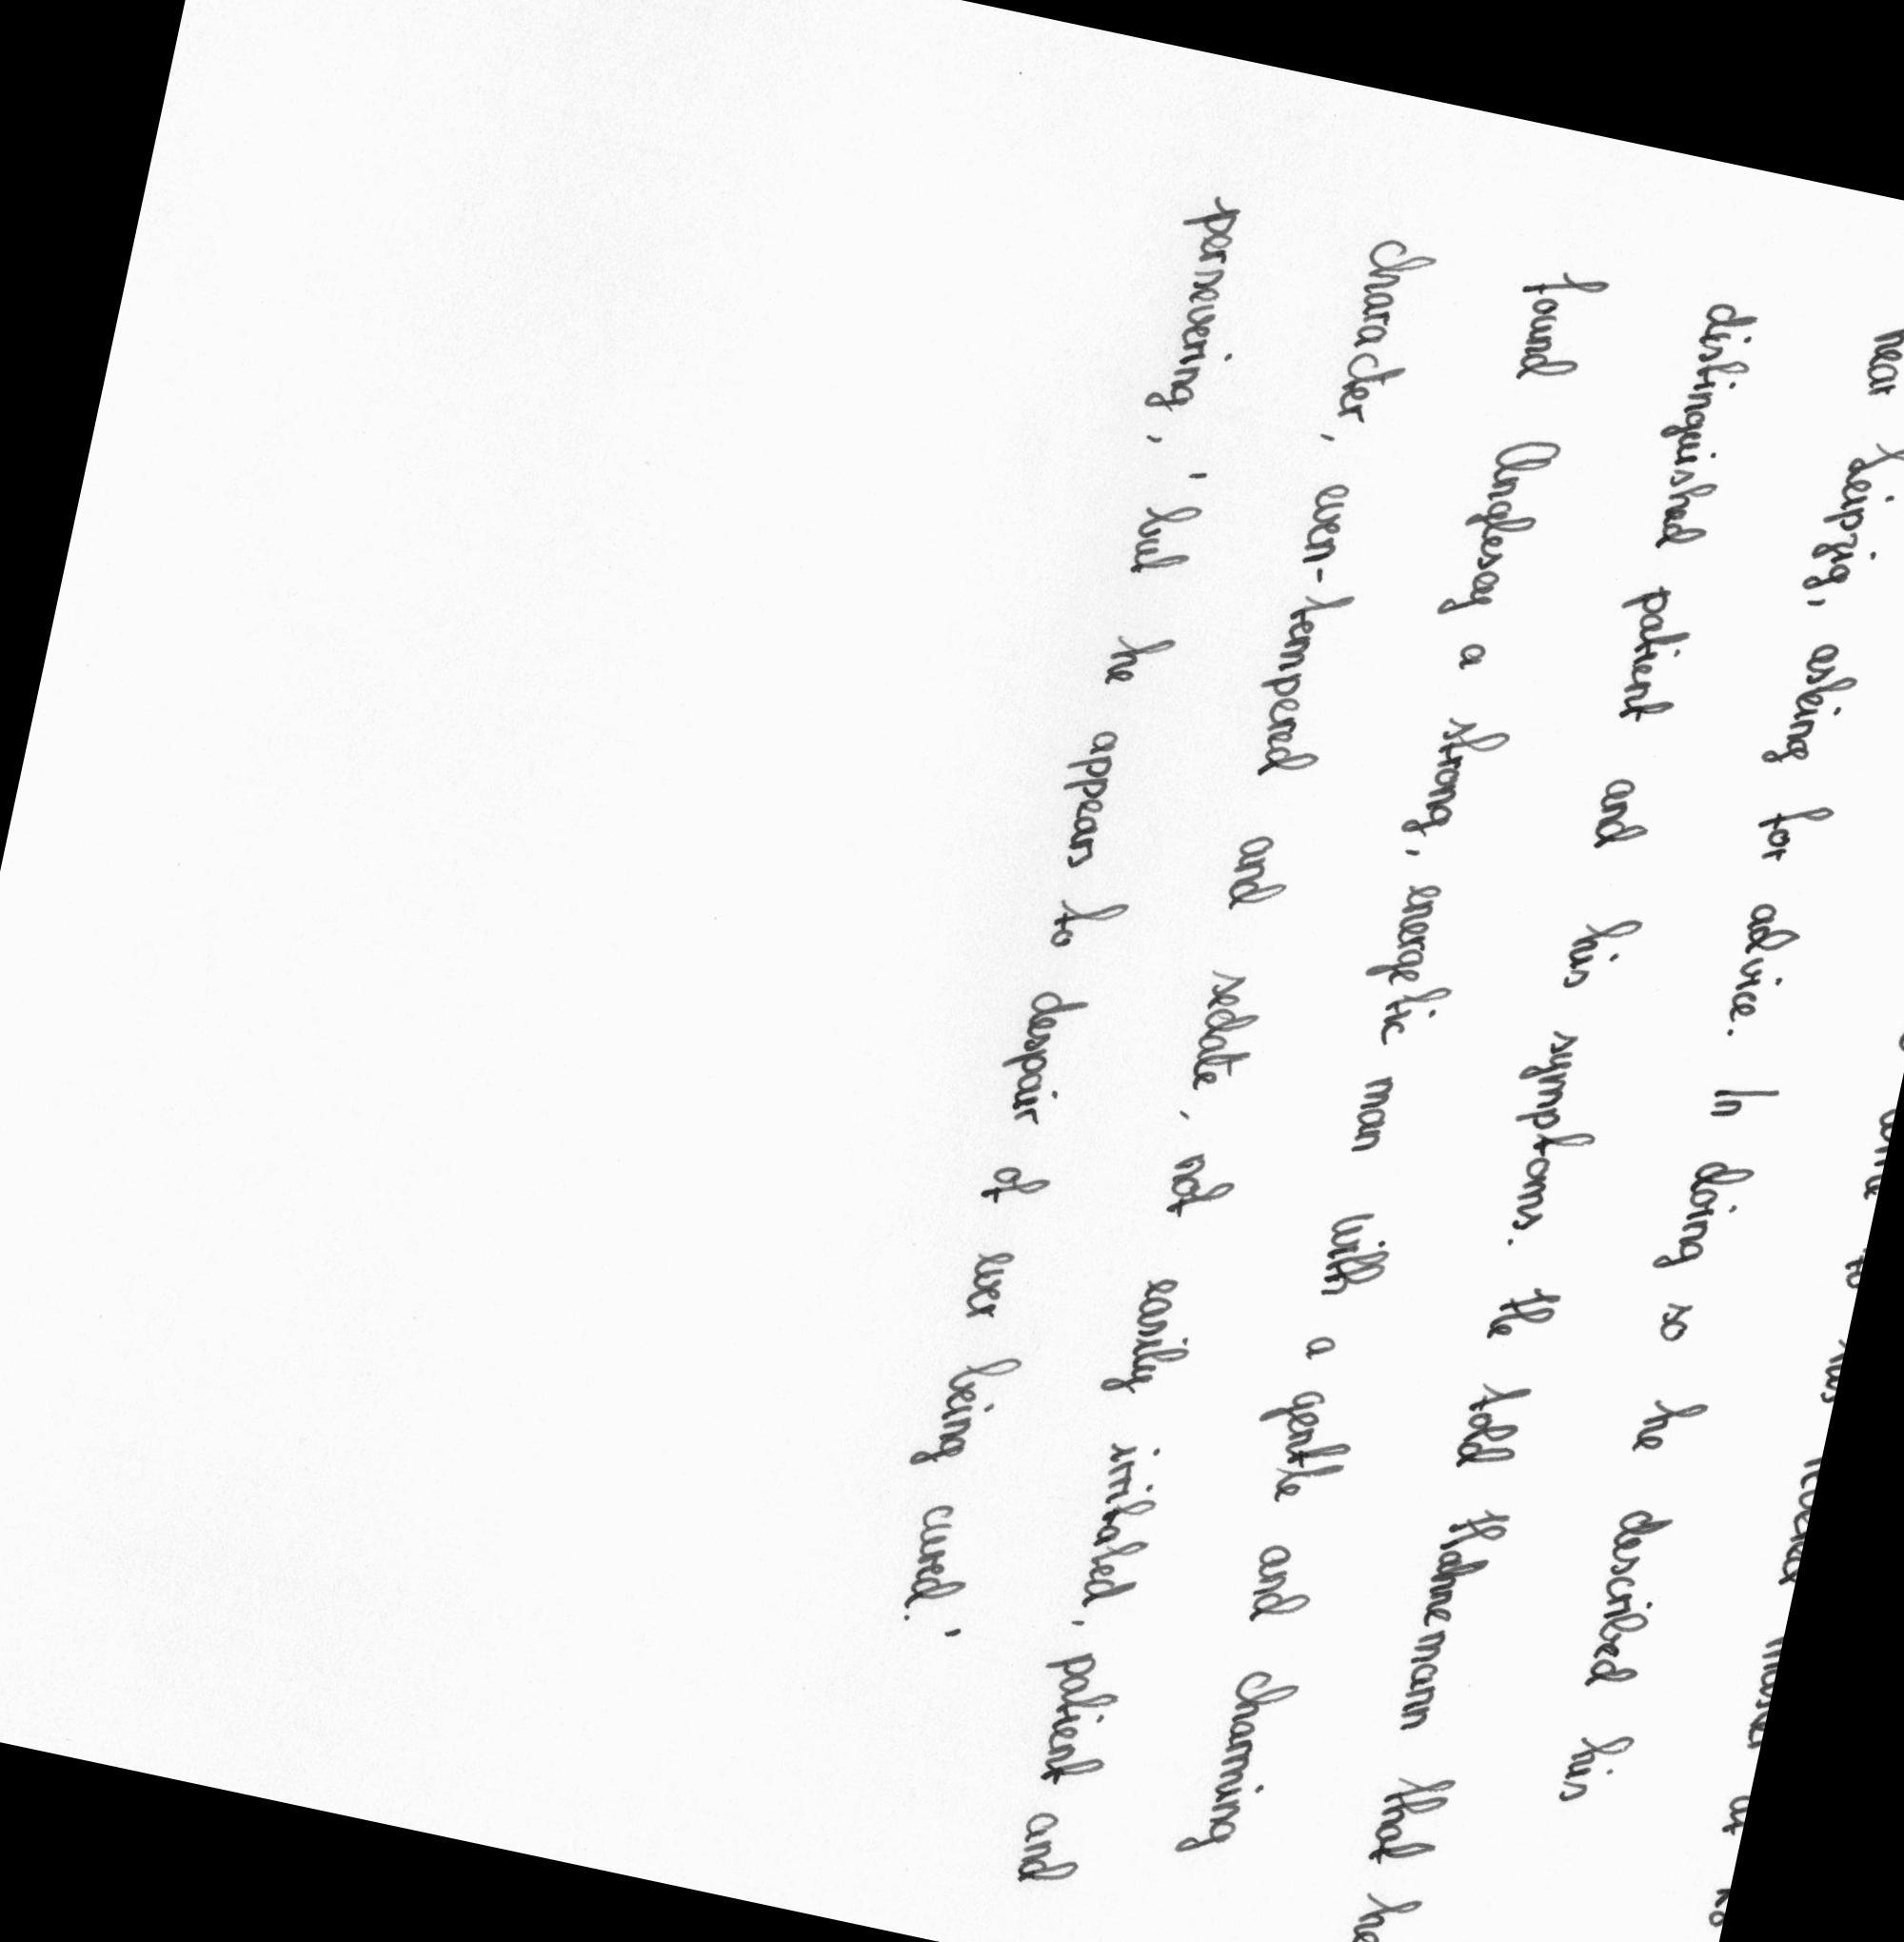 near Leipzig, asking for advice. In doing so he described his
distinguished patient and his symptoms. He told Hahnemann that he
found Anglesey a strong, energetic man with a gentle and charming
character, even-tempered and sedate, not easily irritated, patient and
persevering, 'but he appears to despair of ever being cured.'